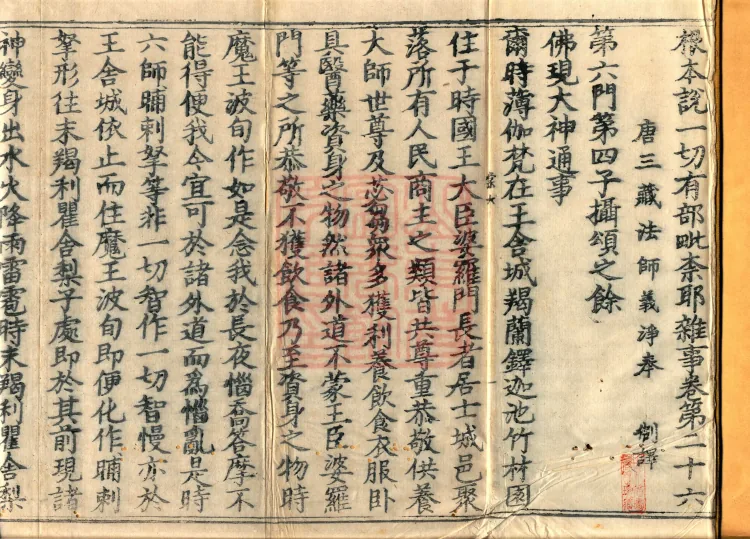 根本說一切有部毗柰耶雜事卷第二十六
唐三藏法師義淨奉　制譯
第六門第四子攝頌之餘
佛現大神通事
爾時薄伽梵在王舍城羯蘭鐸迦池竹林園
住于時國王大臣婆羅門長者居士城邑聚
落所有人民商主之類皆共尊重恭敬供養
大師世尊及苾芻眾多獲利養飲食衣服卧
具醫藥資身之物然諸外道不蒙王臣婆羅
門等之所恭敬不獲飲食乃至資身之物時
魔王波旬作如是念我於長夜惱喬答摩不
能得便我今宜可於諸外道而為惱亂是時
六師晡剌拏等非一切智作一切智慢亦於
王舍城依止而住魔王波旬即便化作晡剌
拏形往末羯利瞿舍梨子處即於其前現諸
神變身出水火降雨雷雹時末羯利瞿舍梨